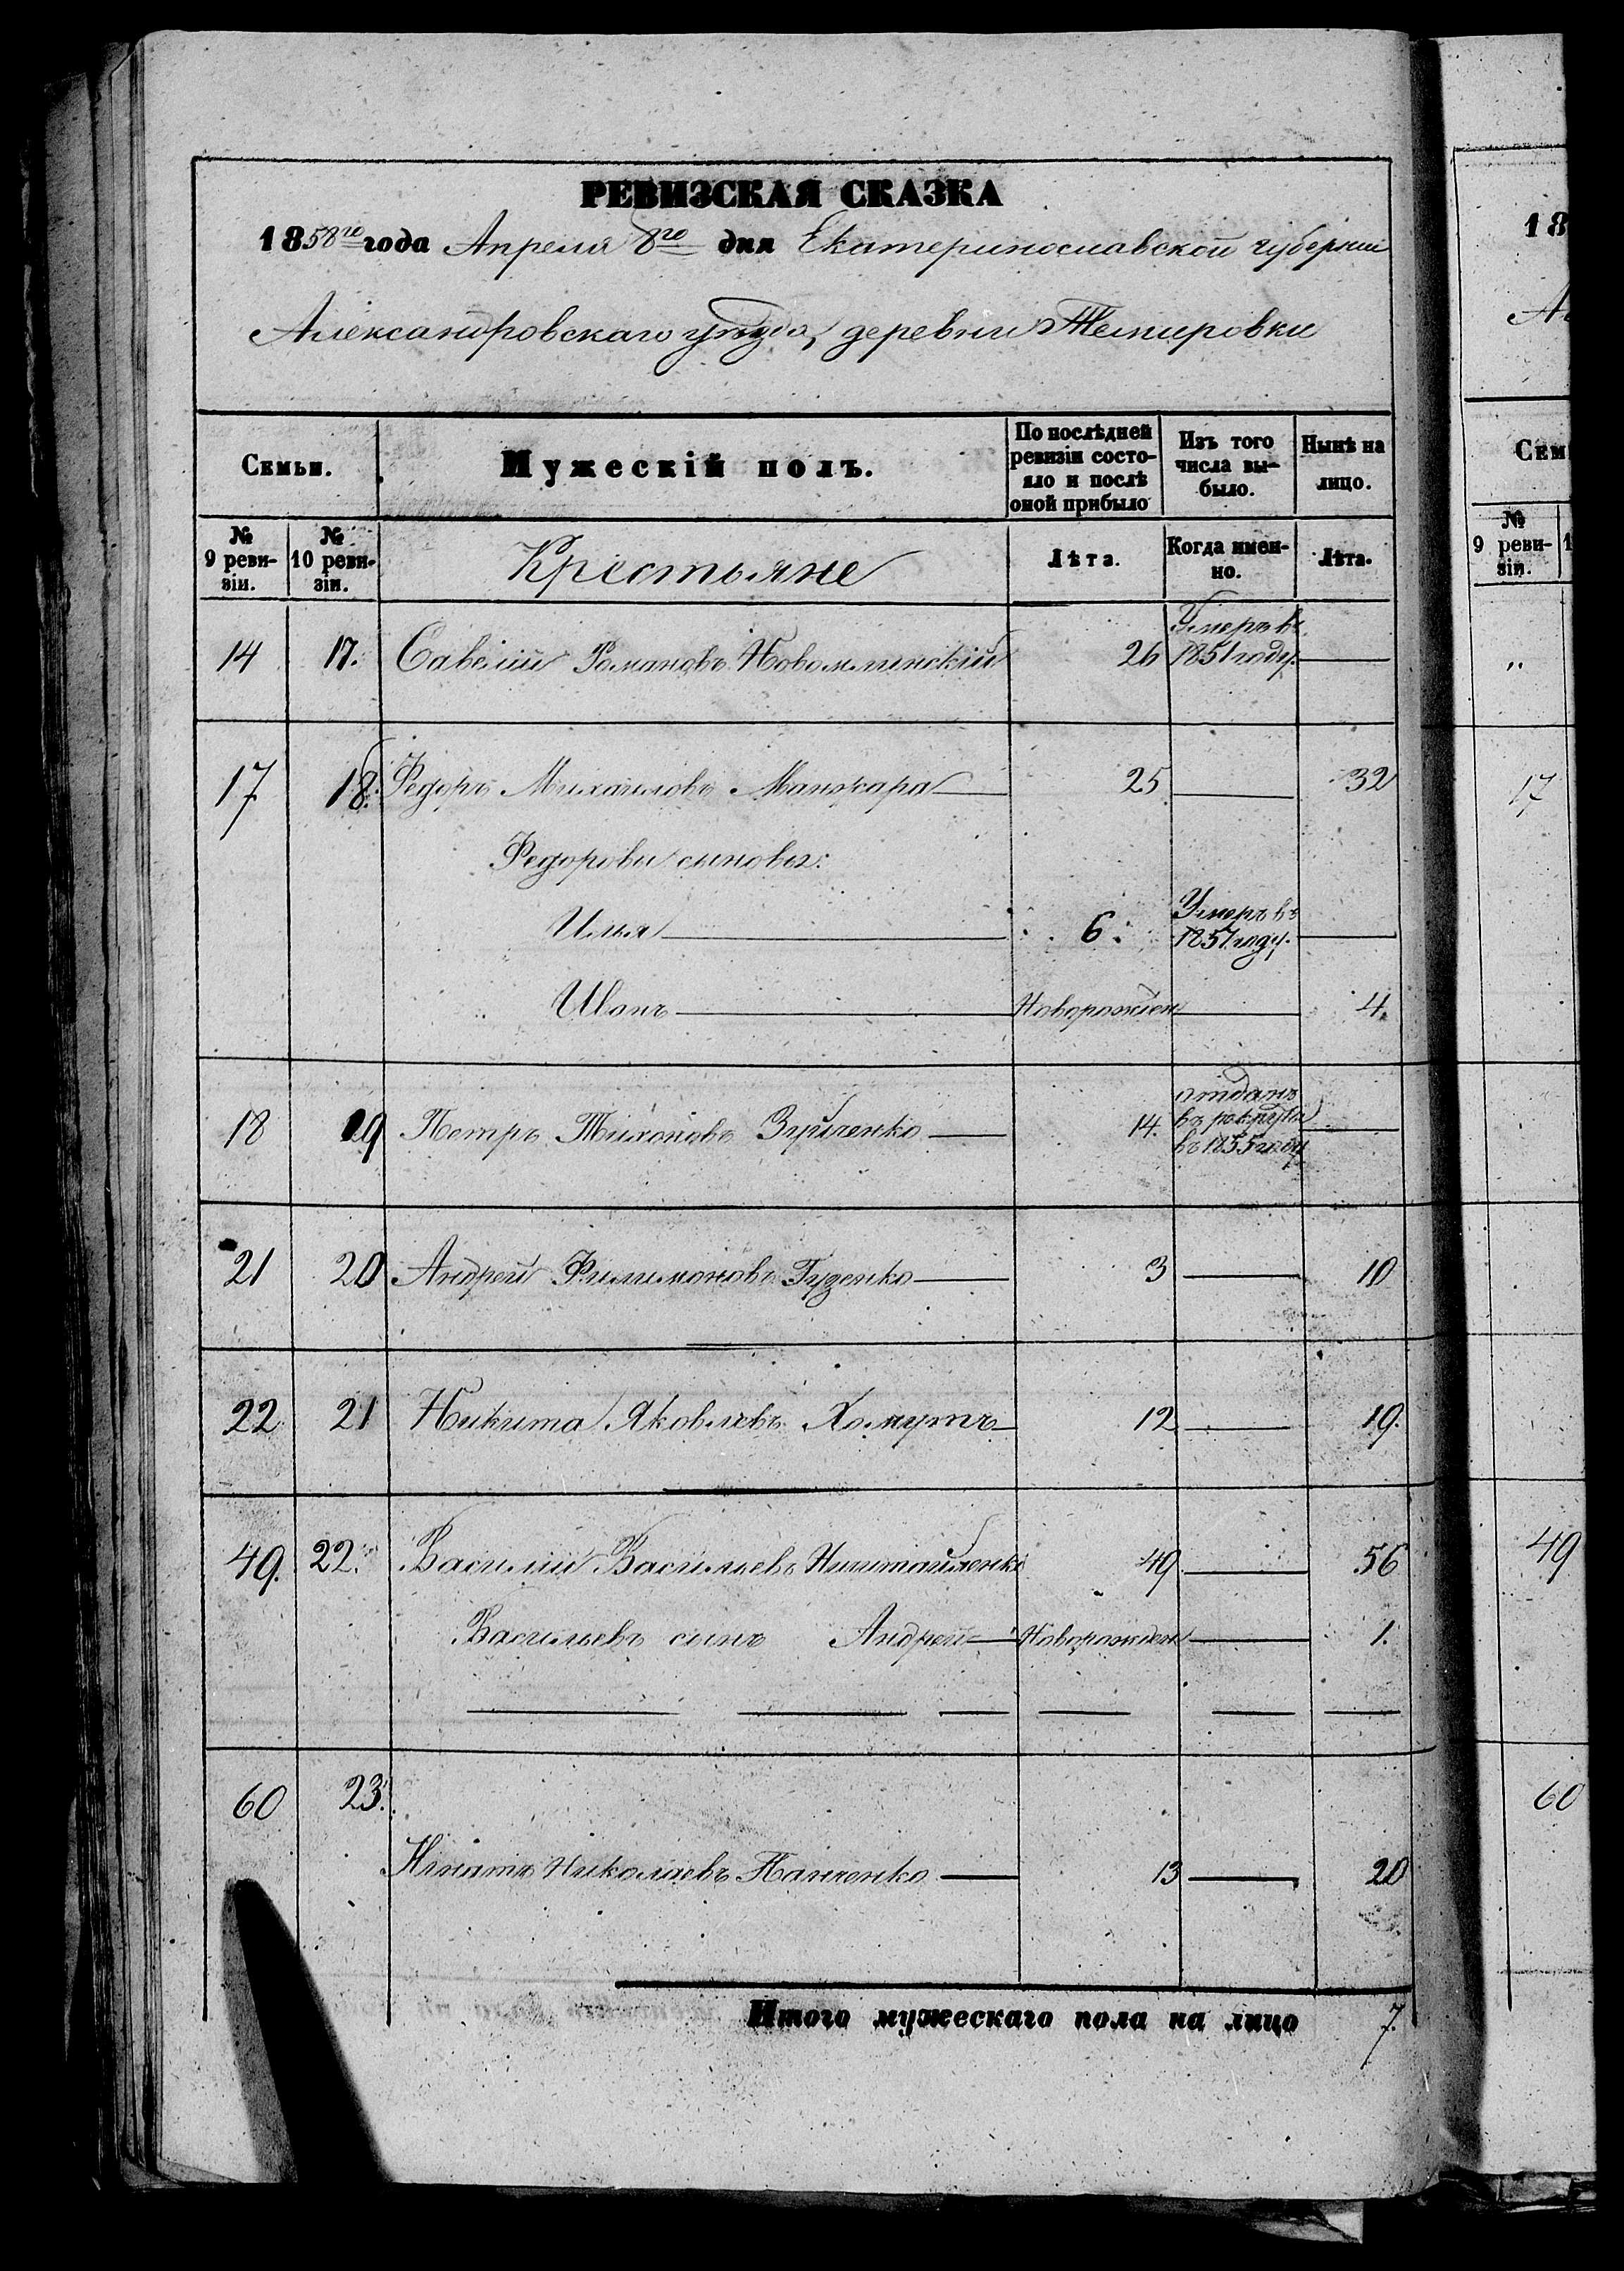 РЕВИЗСКАЯ СКАЗКА
1858го года Апреля 8го дня Екатеринославской губернии
Александровскаго уѣзда, деревни Темировки
Семьи. Мужескій полъ. По послѣдней ревизіи состояло и послѣ оной прибыло Изъ того числа выбыло. Нынѣ на лицо.
№ 9 ревизіи. № 10 ревизіи. Крестьяне Лѣта. Когда именно. Лѣта.
14 17. Савелій Романовъ Новомлинскій 26 Умеръ въ 1851 году.
17 18. Федоръ Михайловъ Манжара 25 32
Федоровы сыновья:
Илья 6. Умеръ въ 1857 году.
Иванъ Новорожден 4.
18 19 Петръ Тихоновъ Зуйченко 14. отданъ въ рекруты въ 1855 году
21 20 Андрей Филимоновъ Гузенко 3 10
22 21 Никита Яковлевъ Хомутъ 12 19.
49. 22. Василий Васильевъ 49 56
Васильевъ сынъ Андрей Новорожден 1.
60 23.
Игнатъ Николаевъ Панченко 13 20
Итого мужескаго пола на лицо 7.
18
А
Сем
№ 9 ревизіи. 1
„
17
49
60